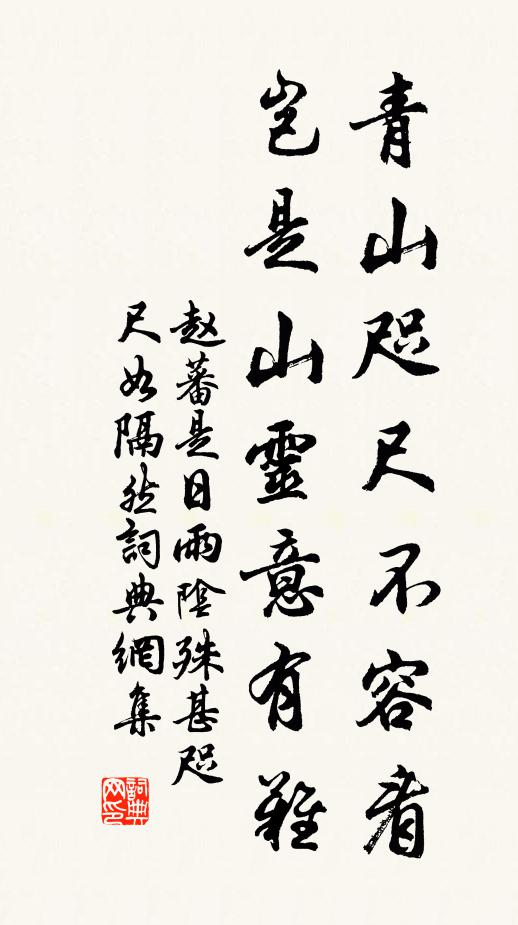 青山咫尺不容看
豈是山靈意有難
赵蕃是日雨陰殊甚咫
尺如隔然詞典網集
詞典
网印